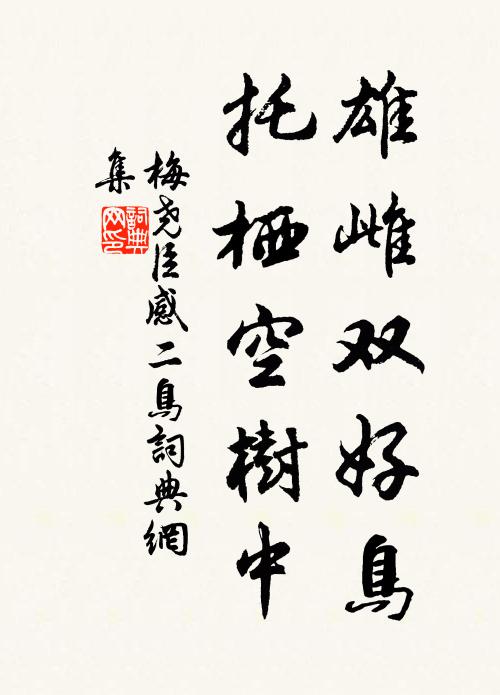 雄雌双好鳥
托栖空樹中
梅尧臣感二鳥詞典網
集
詞典
网印